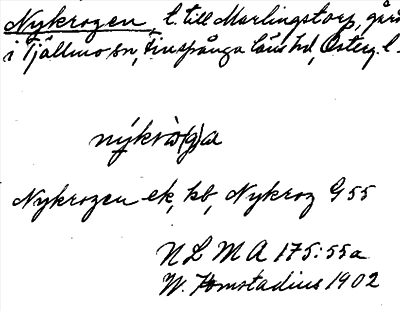 Nykrogen, l. till Marlingstorp, gård
i Tjällmo sn, Finspånga läns hd, Österg. l.
nýkrò(g)a
Nykrogen ek, kb, Nykrog G 55
N L M A 175:55a
W. Homstadius 1902